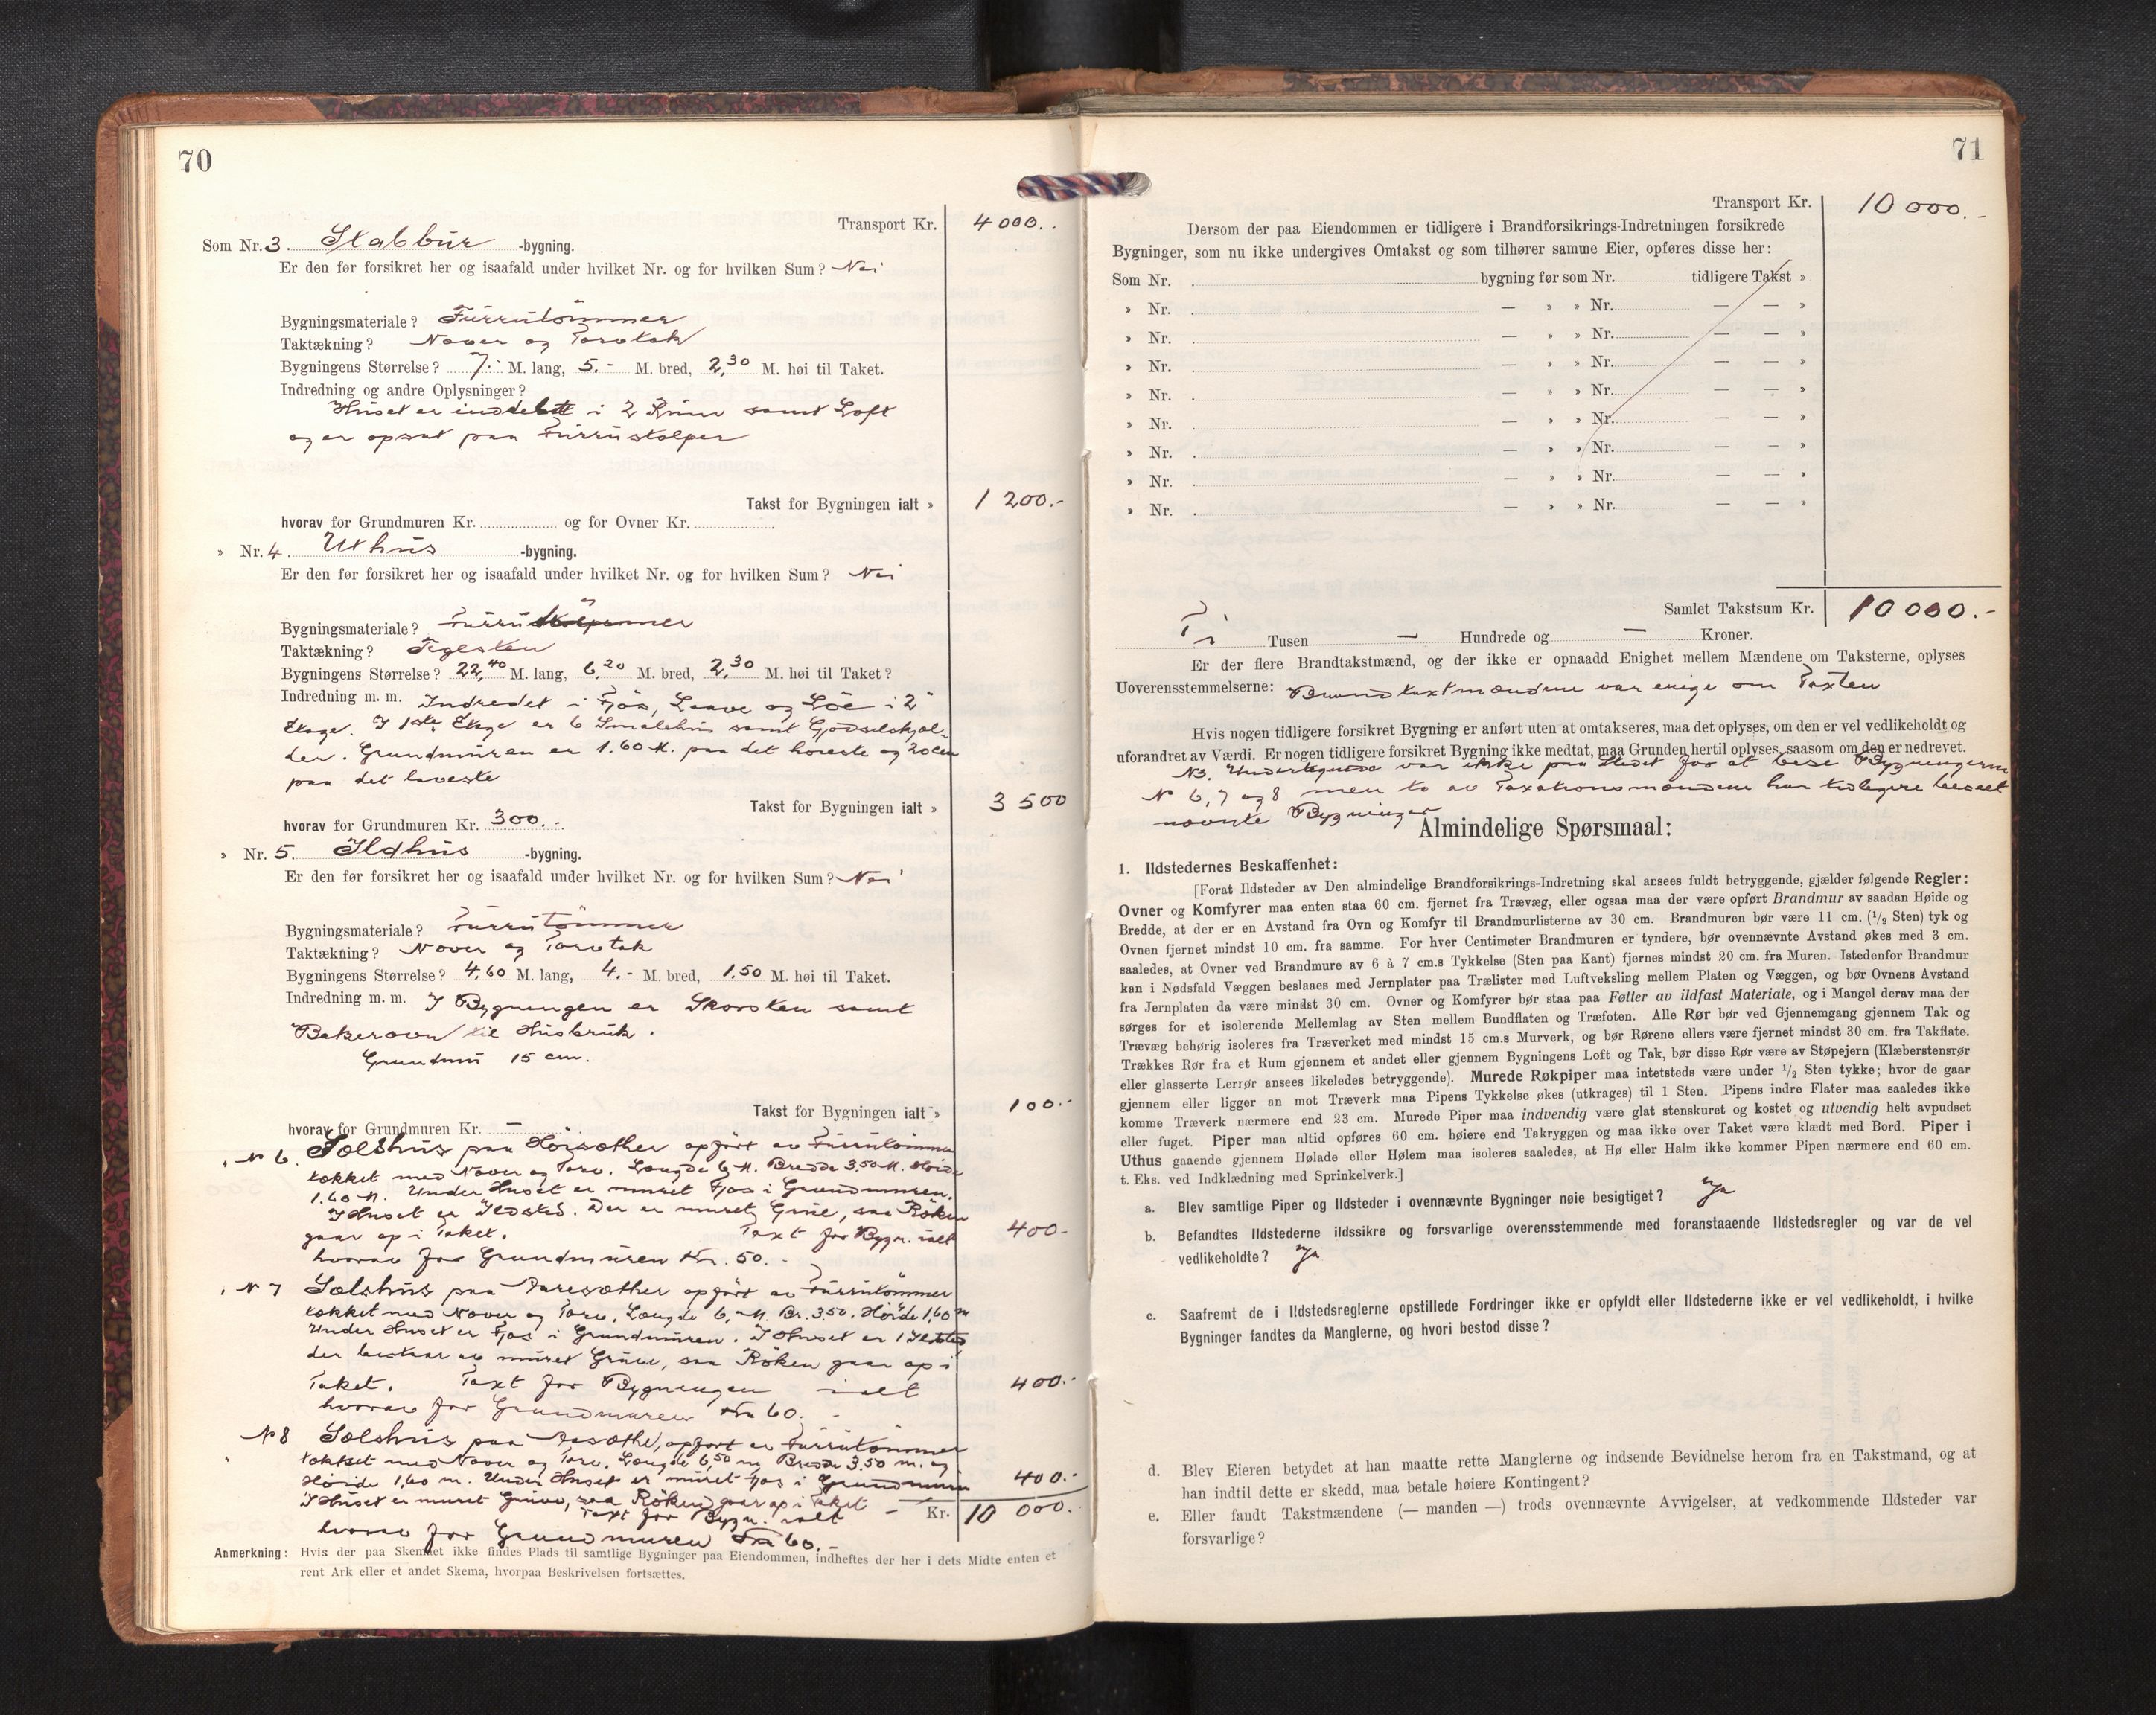 70
Transport Kr. 4000.-
Som Nr. 3. Stabbur -bygning.
Er den før forsikret her og isaafald under hvilket Nr. og for hvilken Sum? Nei
Bygningsmateriale? Furrutömmer
Taktækning? Never og Torvtak
Bygningens Størrelse? 7.- M. lang, 5.- M. bred, 2,30 M. høi til Taket.
Indredning og andre Oplysninger?
Huset er inddelt i 2 Rum samt Loft
og er opsat paa Furrustolper
Takst for Bygningen ialt » 1 200.-
hvorav for Grundmuren Kr. og for Ovner Kr.
» Nr. 4. Uthus -bygning.
Er den før forsikret her og isaafald under hvilket Nr. og for hvilken Sum? Nei
Bygningsmateriale? Furrutömmer
Taktækning? Teglsten
Bygningens Størrelse? 22,40 M. lang, 6,20 M. bred, 2,30 M. høi til Taket?
Indredning m. m. Indredet i Fjös, Laave og Löe i 2
Etage. I 1ste Etage er 6 Smalehus samt Gjödselskjel-
der. Grundmuren er 1.60 M. paa det höieste og 20 cm
paa det laveste
Takst for Bygningen ialt » 3 500
hvorav for Grundmuren Kr. 300.-
» Nr. 5. Ildhus -bygning.
Er den før forsikret her og isaafald under hvilket Nr. og for hvilken Sum? Nei
Bygningsmateriale? Furrutömmer
Taktækning? Never og Torvtak
Bygningens Størrelse? 4,60 M. lang, 4.- M. bred, 1.50 M. høi til Taket.
Indredning m. m. I Bygningen er Skorsten samt
Bakerovn til Husbruk.
Grundmur 15 cm.
Takst for Bygningen ialt » 100.-
hvorav for Grundmuren Kr. —
" N 6. Sælshus paa opfört av Furrutömmer
tækket med Never og Torv. Længde 6 M. Bredde 3.50 M. Höide
1.60 M. Under Huset er muret Fjös i Grundmuren.
I Huset er Ildsted. Der er muret Grue, saa Röken
gaar op i Taket. Taxt for Bygn. ialt 400-
hvorav for Grundmuren Kr. 50.-
" N 7 Sælshus paa opfört av Furrutömmer
tækket med Never og Torv. Længde 6,- M. Br. 3.50. Höide 1,60 m
Under Huset er Fjös i Grundmuren. I Huset er 1 Ildsted
der bestaar av muret Grue, saa Röken gaar op i
Taket. Taxt for Bygningen ialt 400.-
hvorav for Grundmuren Kr 60.-
" N 8 Sælshus paa opfört av Furrutömmer
tækket med Never og Torv. Længde 6,50 m, Bredde 3.50 m. og
Höide 1,60 m. Under Huset er muret Fjös i Grundmuren 400.-
I Huset er muret Grue, saa Röken gaar op i Taket
Taxt for Bygn. ialt - Kr. 10 000.-
hvorav for Grundmuren Kr 60.-
Anmerkning: Hvis der paa Skemaet ikke findes Plads til samtlige Bygninger paa Eiendommen, indheftes der her i dets Midte enten et
rent Ark eller et andet Skema, hvorpaa Beskrivelsen fortsættes.
71
Transport Kr. 10 000.-
Dersom der paa Eiendommen er tidligere i Brandforsikrings-Indretningen forsikrede
Bygninger, som nu ikke undergives Omtakst og som tilhører samme Eier, opføres disse her:
Som Nr. bygning før som Nr. tidligere Takst »
» Nr. — » » Nr. — — »
» Nr. — » » Nr. — — »
» Nr. — » » Nr. — — »
» Nr. — » » Nr. — — »
» Nr. — » » Nr. — — »
» Nr. — » » Nr. — — »
» Nr. — » » Nr. — — »
» Nr. — » » Nr. — — »
Samlet Takstsum Kr. 10 000.-
Ti Tusen — Hundrede og — Kroner.
Er der flere Brandtakstmænd, og der ikke er opnaadd Enighet mellem Mændene om Taksterne, oplyses
Uoverensstemmelserne: Brandtaxtmændene var enige om Taxten
Hvis nogen tidligere forsikret Bygning er anført uten at omtakseres, maa det oplyses, om den er vel vedlikeholdt og
uforandret av Værdi. Er nogen tidligere forsikret Bygning ikke medtat, maa Grunden hertil oplyses, saasom om den er nedrevet.
NB. Undertegnede var ikke paa Stedet for at bese Bygningerne
N 6, 7 og 8 men to av Taxationsmændene har tidligere beseet
nævnte Bygninger
Almindelige Spørsmaal:
1. Ildstedernes Beskaffenhet:
[Forat Ildsteder av Den almindelige Brandforsikrings-Indretning skal ansees fuldt betryggende, gjælder følgende Regler:
Ovner og Komfyrer maa enten staa 60 cm. fjernet fra Trævæg, eller ogsaa maa der være opført Brandmur av saadan Høide og
Bredde, at der er en Avstand fra Ovn og Komfyr til Brandmurlisterne av 30 cm. Brandmuren bør være 11 cm. (1/2 Sten) tyk og
Ovnen fjernet mindst 10 cm. fra samme. For hver Centimeter Brandmuren er tyndere, bør ovennævnte Avstand økes med 3 cm.
saaledes, at Ovner ved Brandmure av 6 à 7 cm.s Tykkelse (Sten paa Kant) fjernes mindst 20 cm. fra Muren. Istedenfor Brandmur
kan i Nødsfald Væggen beslaaes med Jernplater paa Trælister med Luftveksling mellem Platen og Væggen, og bør Ovnens Avstand
fra Jernplaten da være mindst 30 cm. Ovner og Komfyrer bør staa paa Føtter av ildfast Materiale, og i Mangel derav maa der
sørges for et isolerende Mellemlag av Sten mellem Bundflaten og Træfoten. Alle Rør bør ved Gjennemgang gjennem Tak og
Trævæg behørig isoleres fra Træverket med mindst 15 cm.s Murverk, og bør Rørene ellers være fjernet mindst 30 cm. fra Takflate.
Trækkes Rør fra et Rum gjennem et andet eller gjennem Bygningens Loft og Tak, bør disse Rør være av Støpejern (Klæberstensrør
eller glasserte Lerrør ansees likeledes betryggende). Murede Røkpiper maa intetsteds være under 1/2 Sten tykke; hvor de gaar
gjennem eller ligger an mot Træverk maa Pipens Tykkelse økes (utkrages) til 1 Sten. Pipens indre Flater maa saaledes ikke
komme Træverk nærmere end 23 cm. Murede Piper maa indvendig være glat stenskuret og kostet og utvendig helt avpudset
eller fuget. Piper maa altid opføres 60 cm. høiere end Takryggen og maa ikke over Taket være klædt med Bord. Piper i
Uthus gaaende gjennem Hølade eller Hølem maa isoleres saaledes, at Hø eller Halm ikke kommer Pipen nærmere end 60 cm.
t. Eks. ved Indklædning med Sprinkelverk.]
a. Blev samtlige Piper og Ildsteder i ovennævnte Bygninger nøie besigtiget? ja
b. Befandtes Ildstederne ildssikre og forsvarlige overensstemmende med foranstaaende Ildstedsregler og var de vel
vedlikeholdte? ja
c. Saafremt de i Ildstedsreglerne opstillede Fordringer ikke er opfyldt eller Ildstederne ikke er vel vedlikeholdt, i hvilke
Bygninger fandtes da Manglerne, og hvori bestod disse?
d. Blev Eieren betydet at han maatte rette Manglerne og indsende Bevidnelse herom fra en Takstmand, og at
han indtil dette er skedd, maa betale høiere Kontingent?
e. Eller fandt Takstmændene (— manden —) trods ovennævnte Avvigelser, at vedkommende Ildsteder var
forsvarlige?